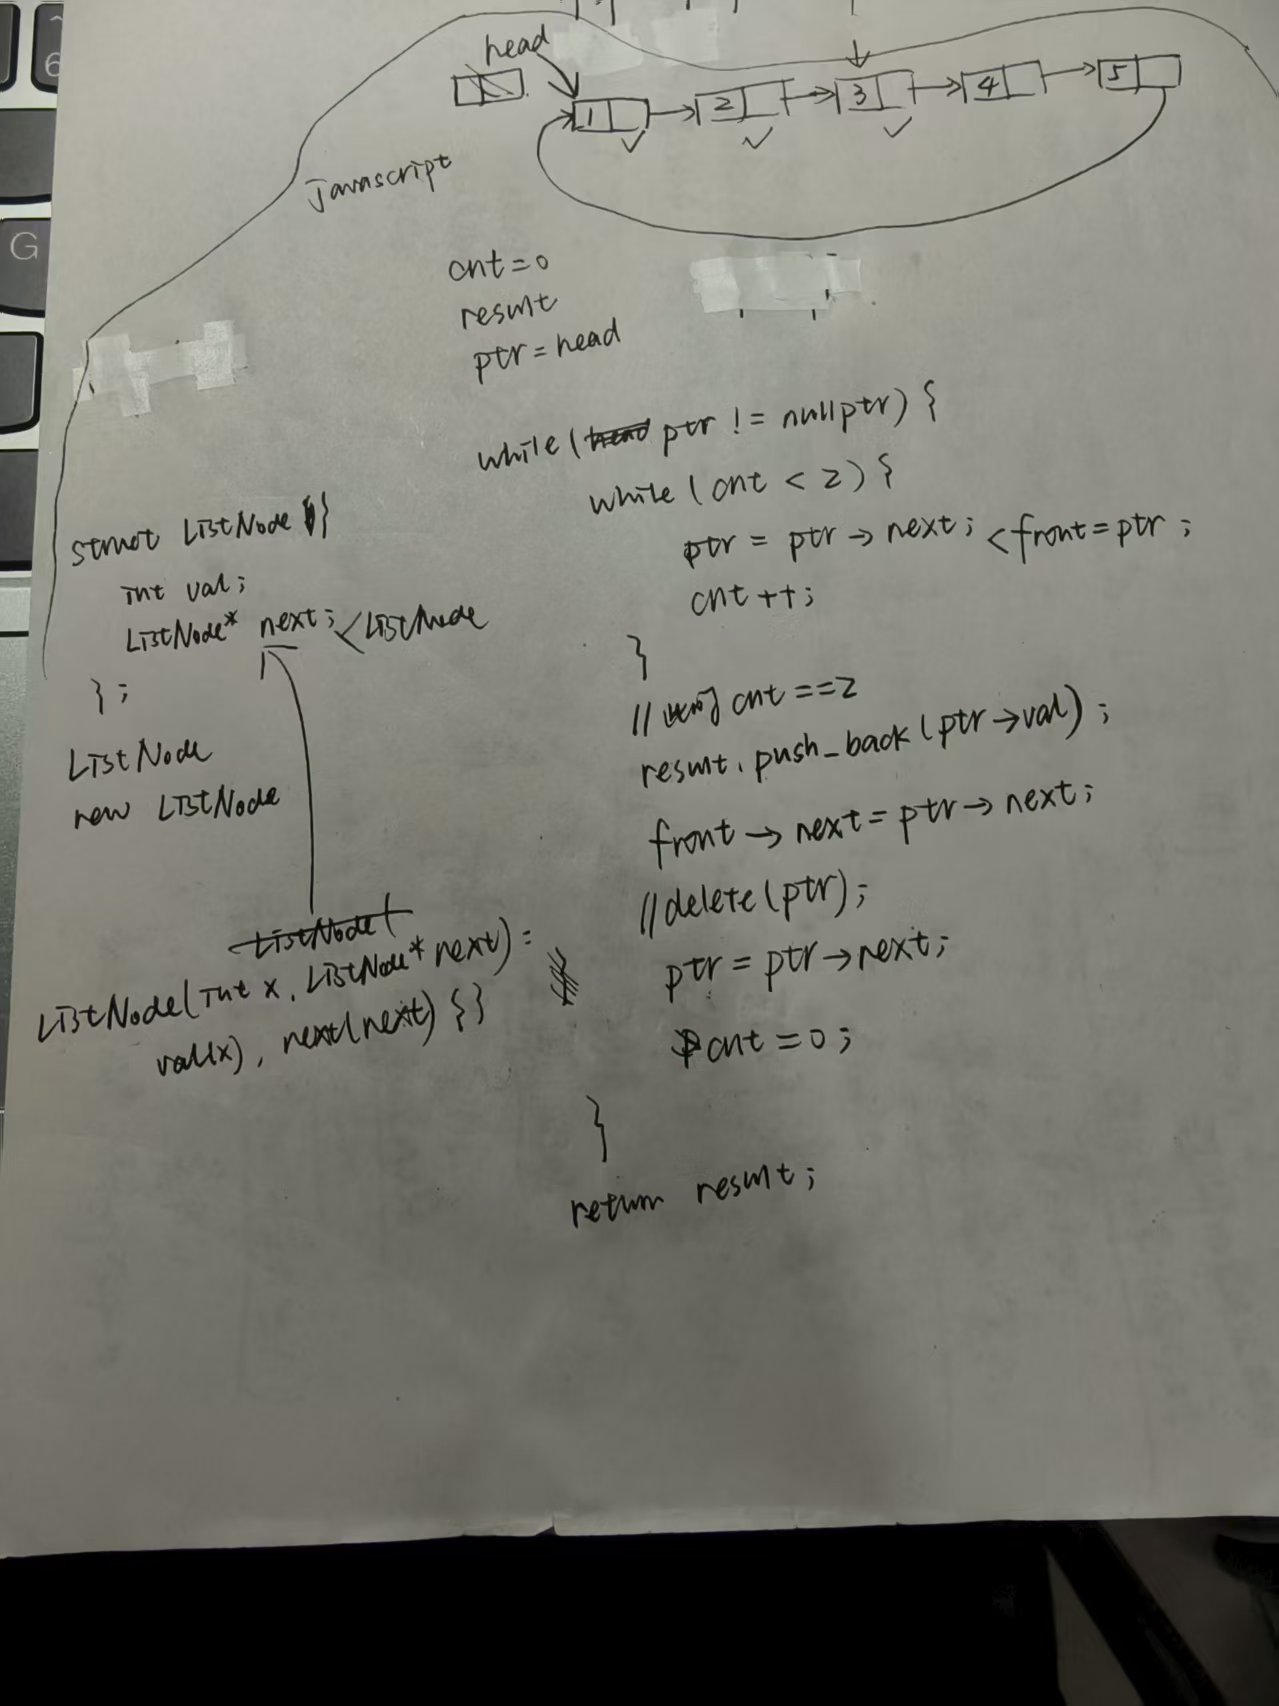 head
1 2 3 4 5
Javascript
cnt=0
result
ptr=head
while(ptr != nullptr) {
while(cnt < 2) {
ptr = ptr→next; <front=ptr;
cnt++;
}
// cnt ==2
result.push_back(ptr→val);
front→next=ptr→next;
//delete(ptr);
ptr=ptr→next;
cnt=0;
}
return result;
struct ListNode {
int val;
ListNode* next; <ListNode
};
ListNode
new ListNode
ListNode(
ListNode(int x, ListNode* next):
val(x), next(next) {}
6
G